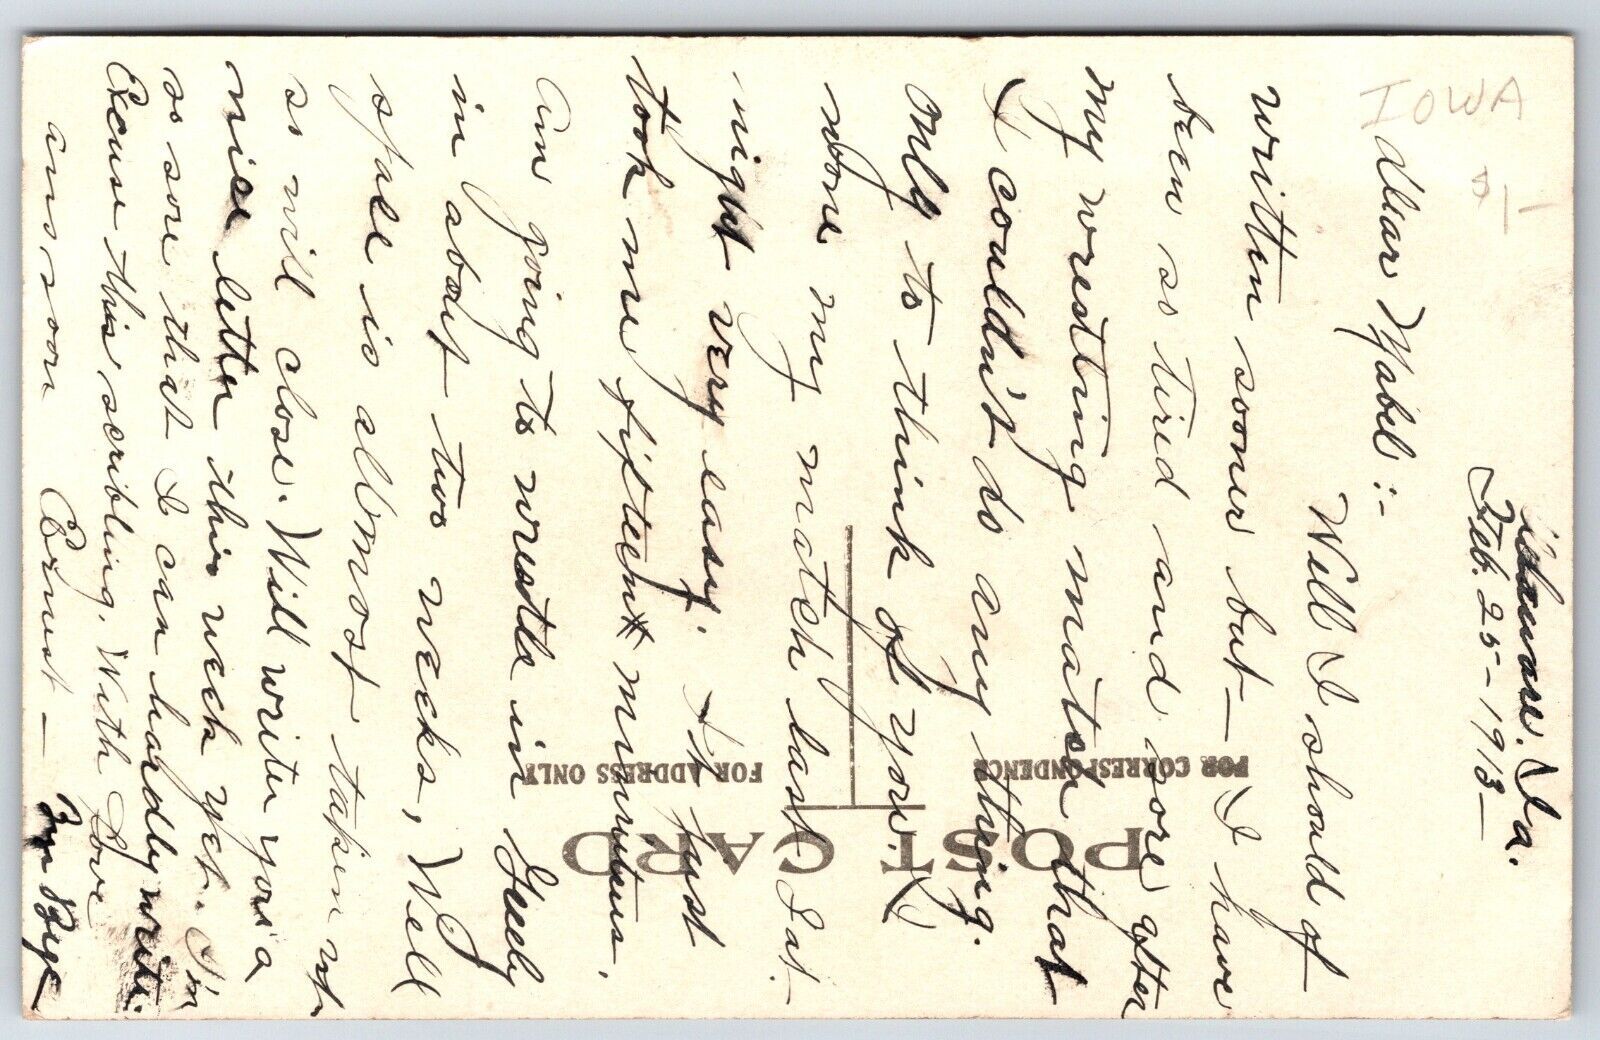 IOWA
$1-
Ia.
Feb. 25-1913-
Dear Mabel:-
Well I should of
written sooner but- I have
been so tired and sore after
my wrestling match that
I couldn't do any thing.
only to think of you. I
wone my match last Sat.
night very easy. It just
took me fifteen minuteus.
am going to wrestle in
in about two weeks, Well
spale is allmost taken up
so will close. Will write you a
nice letter this week yet. I'm
so sore that I can hardly write.
Excuse this scribling, With Love
ans, soon Ernest - Bye Bye -
POST CARD
FOR CORRESPONDENCE
FOR ADDRESS ONLY